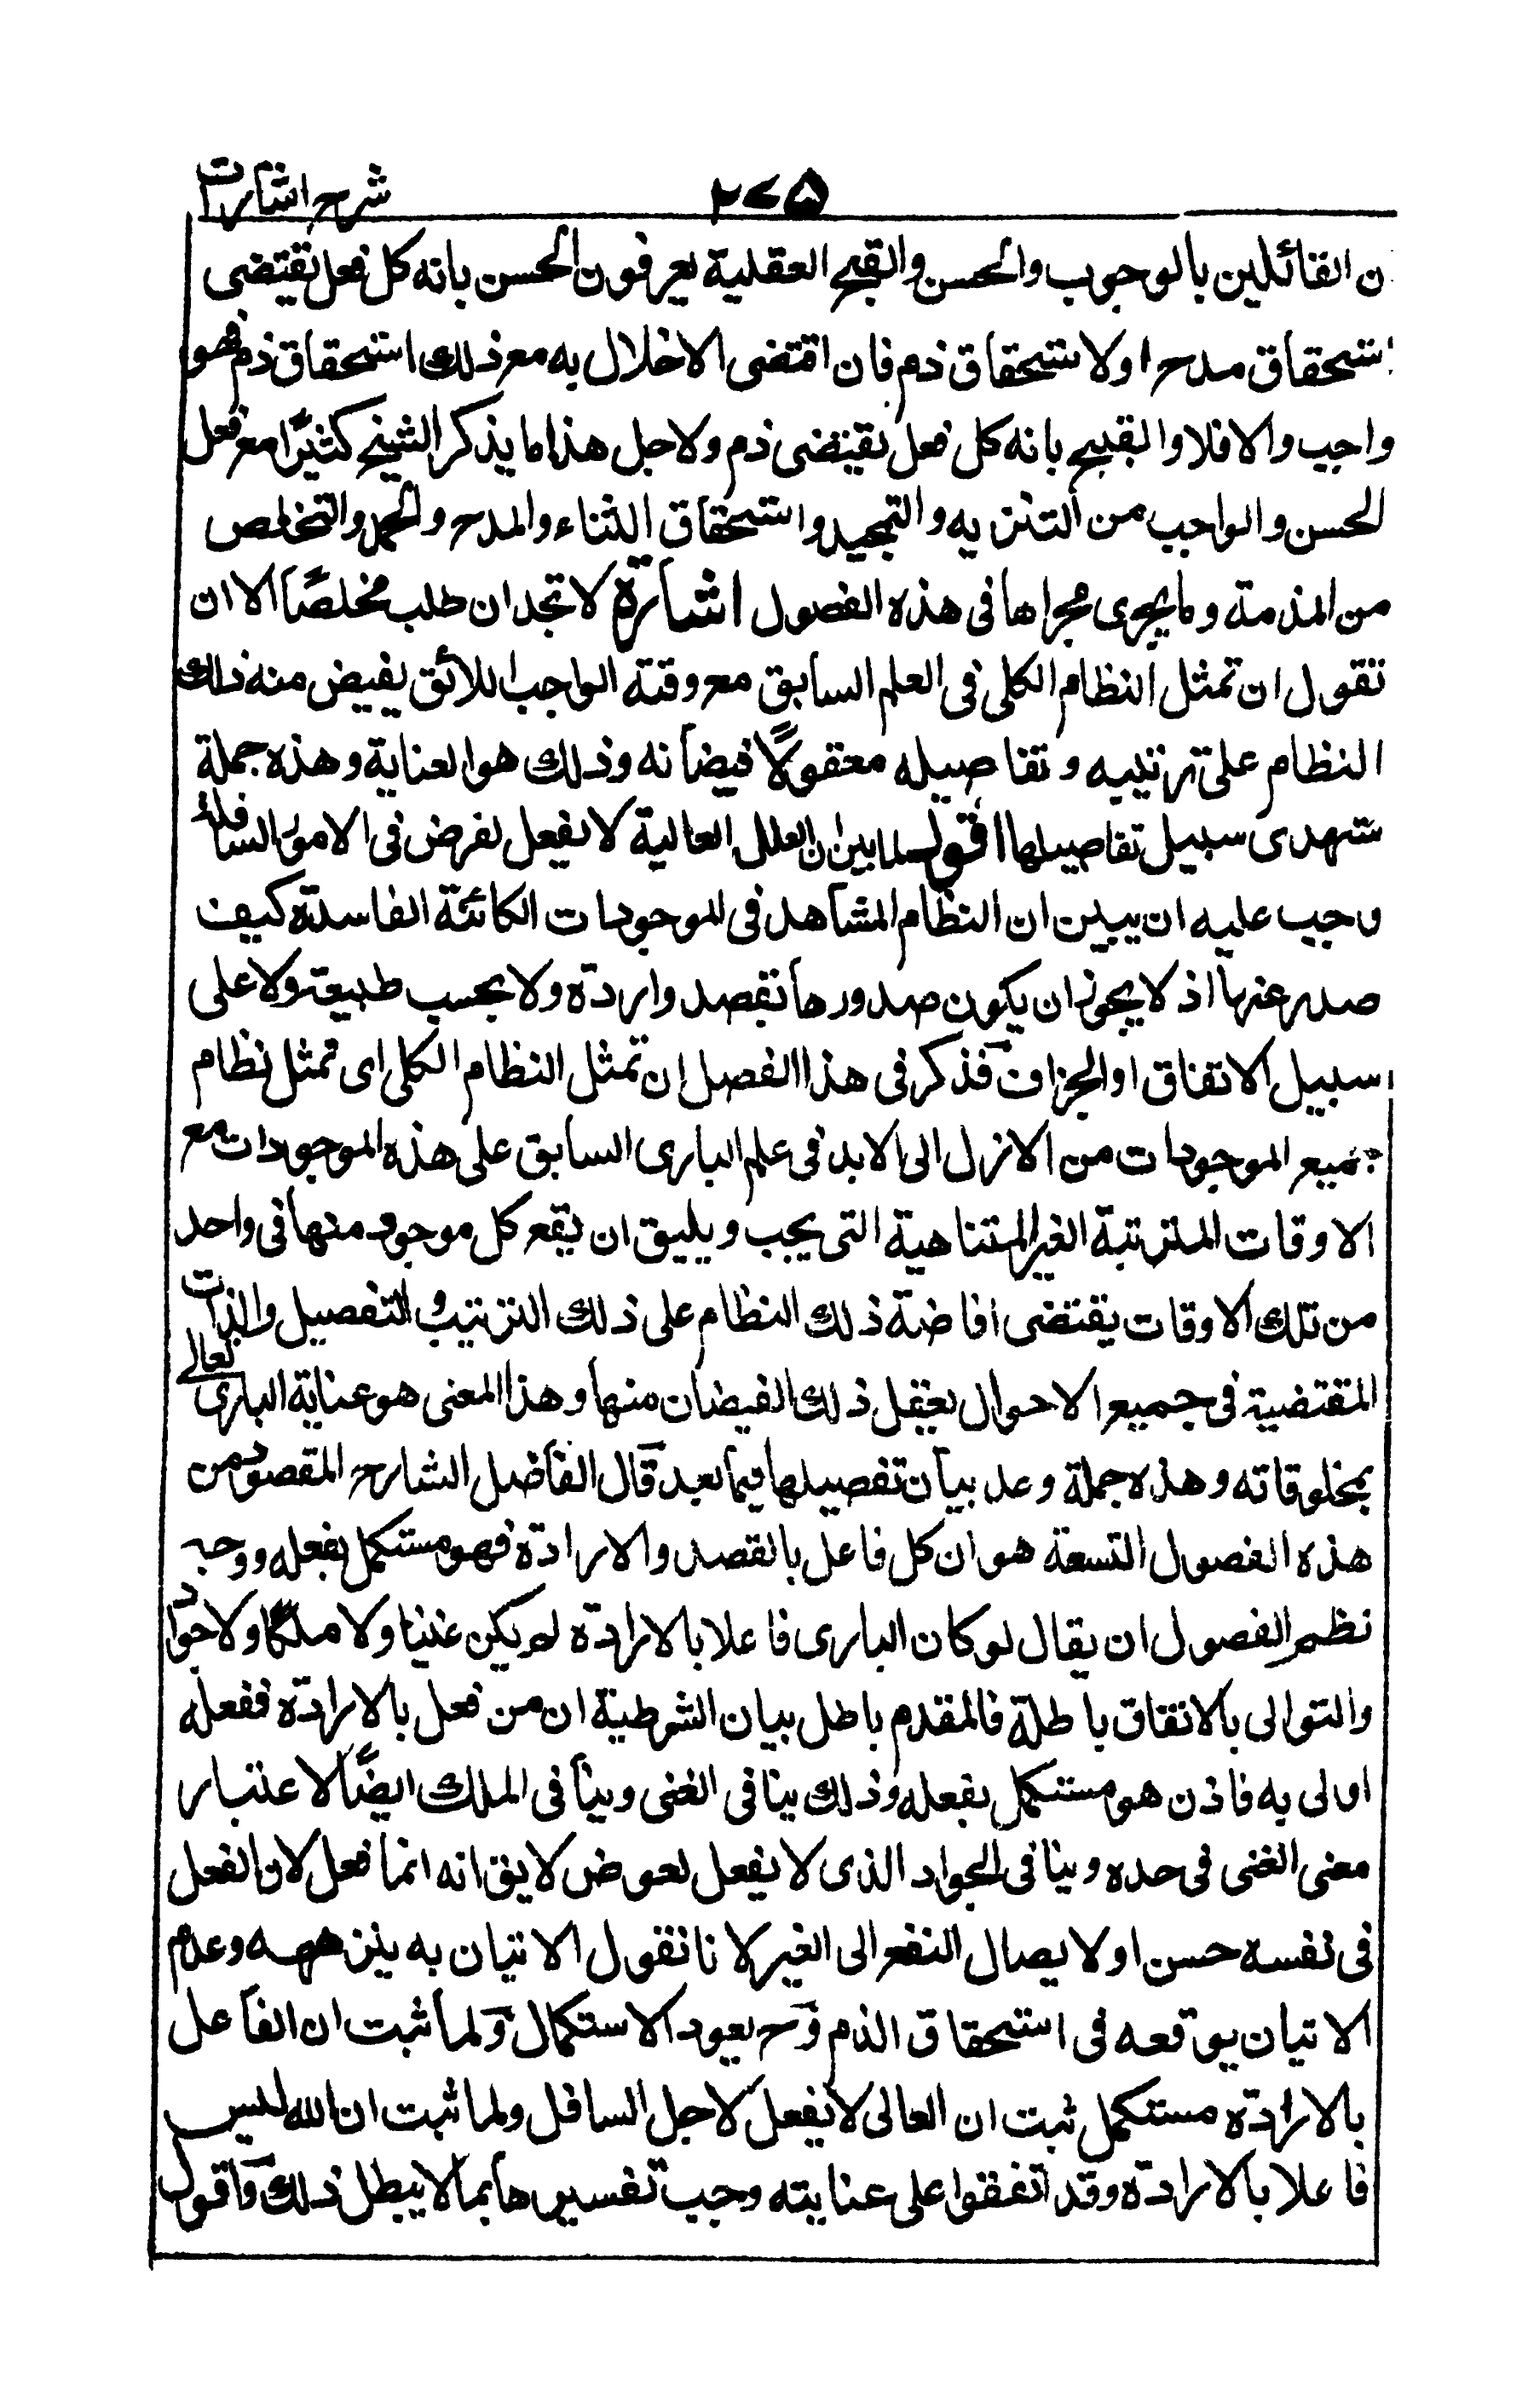 شرح اشارات
٢٧٥
ن القائلين بالوجوب والحسن والقبح العقلية يعرفون الحسن بانه كل فعل يقتضى
استحقاق مدح او لا ستحقاق ذم فان اقتضى الاخلال به مع ذلك استحقاق ذم فهو
واجب والا فلا والقبيح بانه كل فعل يقتضى ذم ولاجل هذا ما يذكر الشيخ كثيرًا مع فعل
الحسن والواجب من التنزيه والتمجيد واستحقاق الثناء والمدح والحمد والتخلص
من المذمة وما يجرى مجراها فى هذه الفصول اشارة لا تجد ان طلب مخلصًا الا ان
تقول ان تمثل النظام الكلى فى العلم السابق مع وقته الواجب اللائق يفيض منه ذلك
النظام على ترتيبه و تفاصيله معقولًا فيضانه وذلك هو العناية وهذه جملة
ستهدى سبيل تفاصيلها اقول لما بين ان العلل العالية لا يفعل لغرض فى الامور السافلة
وجب عليه ان يبين ان النظام المشاهد فى الموجودات الكائنة الفاسدة كيف
صدر عنها اذ لا يجوز ان يكون صدورها بقصد وارادة ولا بحسب طبيعة ولا على
سبيل الاتفاق او الجزاف فذكر فى هذا الفصل ان تمثل النظام الكلى اى تمثل نظام
جميع الموجودات من الازل الى الابد فى علم البارى السابق على هذه الموجودات مع
الاوقات المترتبة الغير المتناهية التى يجب ويليق ان يقع كل موجود منها فى واحد
من تلك الاوقات يقتضى افاضة ذلك النظام على ذلك الترتيب و التفصيل والذات
المقتضية فى جميع الاحوال يعقل ذلك الفيضان منها وهذا المعنى هو عناية البارى تعالى
بمخلوقاته وهذه جملة وعد بيان تفصيلها فيما بعد قال الفاضل الشارح المقصود من
هذه الفصول التسعة هو ان كل فاعل بالقصد والارادة فهو مستكمل بفعله ووجه
نظم الفصول ان يقال لو كان البارى فاعلا بالارادة لم يكن غنيا ولا ملكًا ولا جوادا
والتوالى بالاتفاق باطلة فالمقدم باطل بيان الشرطية ان من فعل بالارادة ففعله
اولى به فاذن هو مستكمل بفعله وذلك ينافى الغنى وينافى الملك ايضًا لاعتبار
معنى الغنى فى حده وينافى الجواد الذى لا يفعل لعوض لا يق انه انما فعل لان الفعل
فى نفسه حسن او لايصال النفع الى الغير لانا نقول الاتيان به ينزهه وعدم
الاتيان يوقعه فى استحقاق الذم وح يعود الاستكمال ولما ثبت ان الفاعل
بالارادة مستكمل ثبت ان العالى لا يفعل لاجل السافل ولما ثبت ان الله ليس
فاعلا بالارادة وقد اتفقوا على عنايته وجب تفسيرها بما لا يبطل ذلك واقول